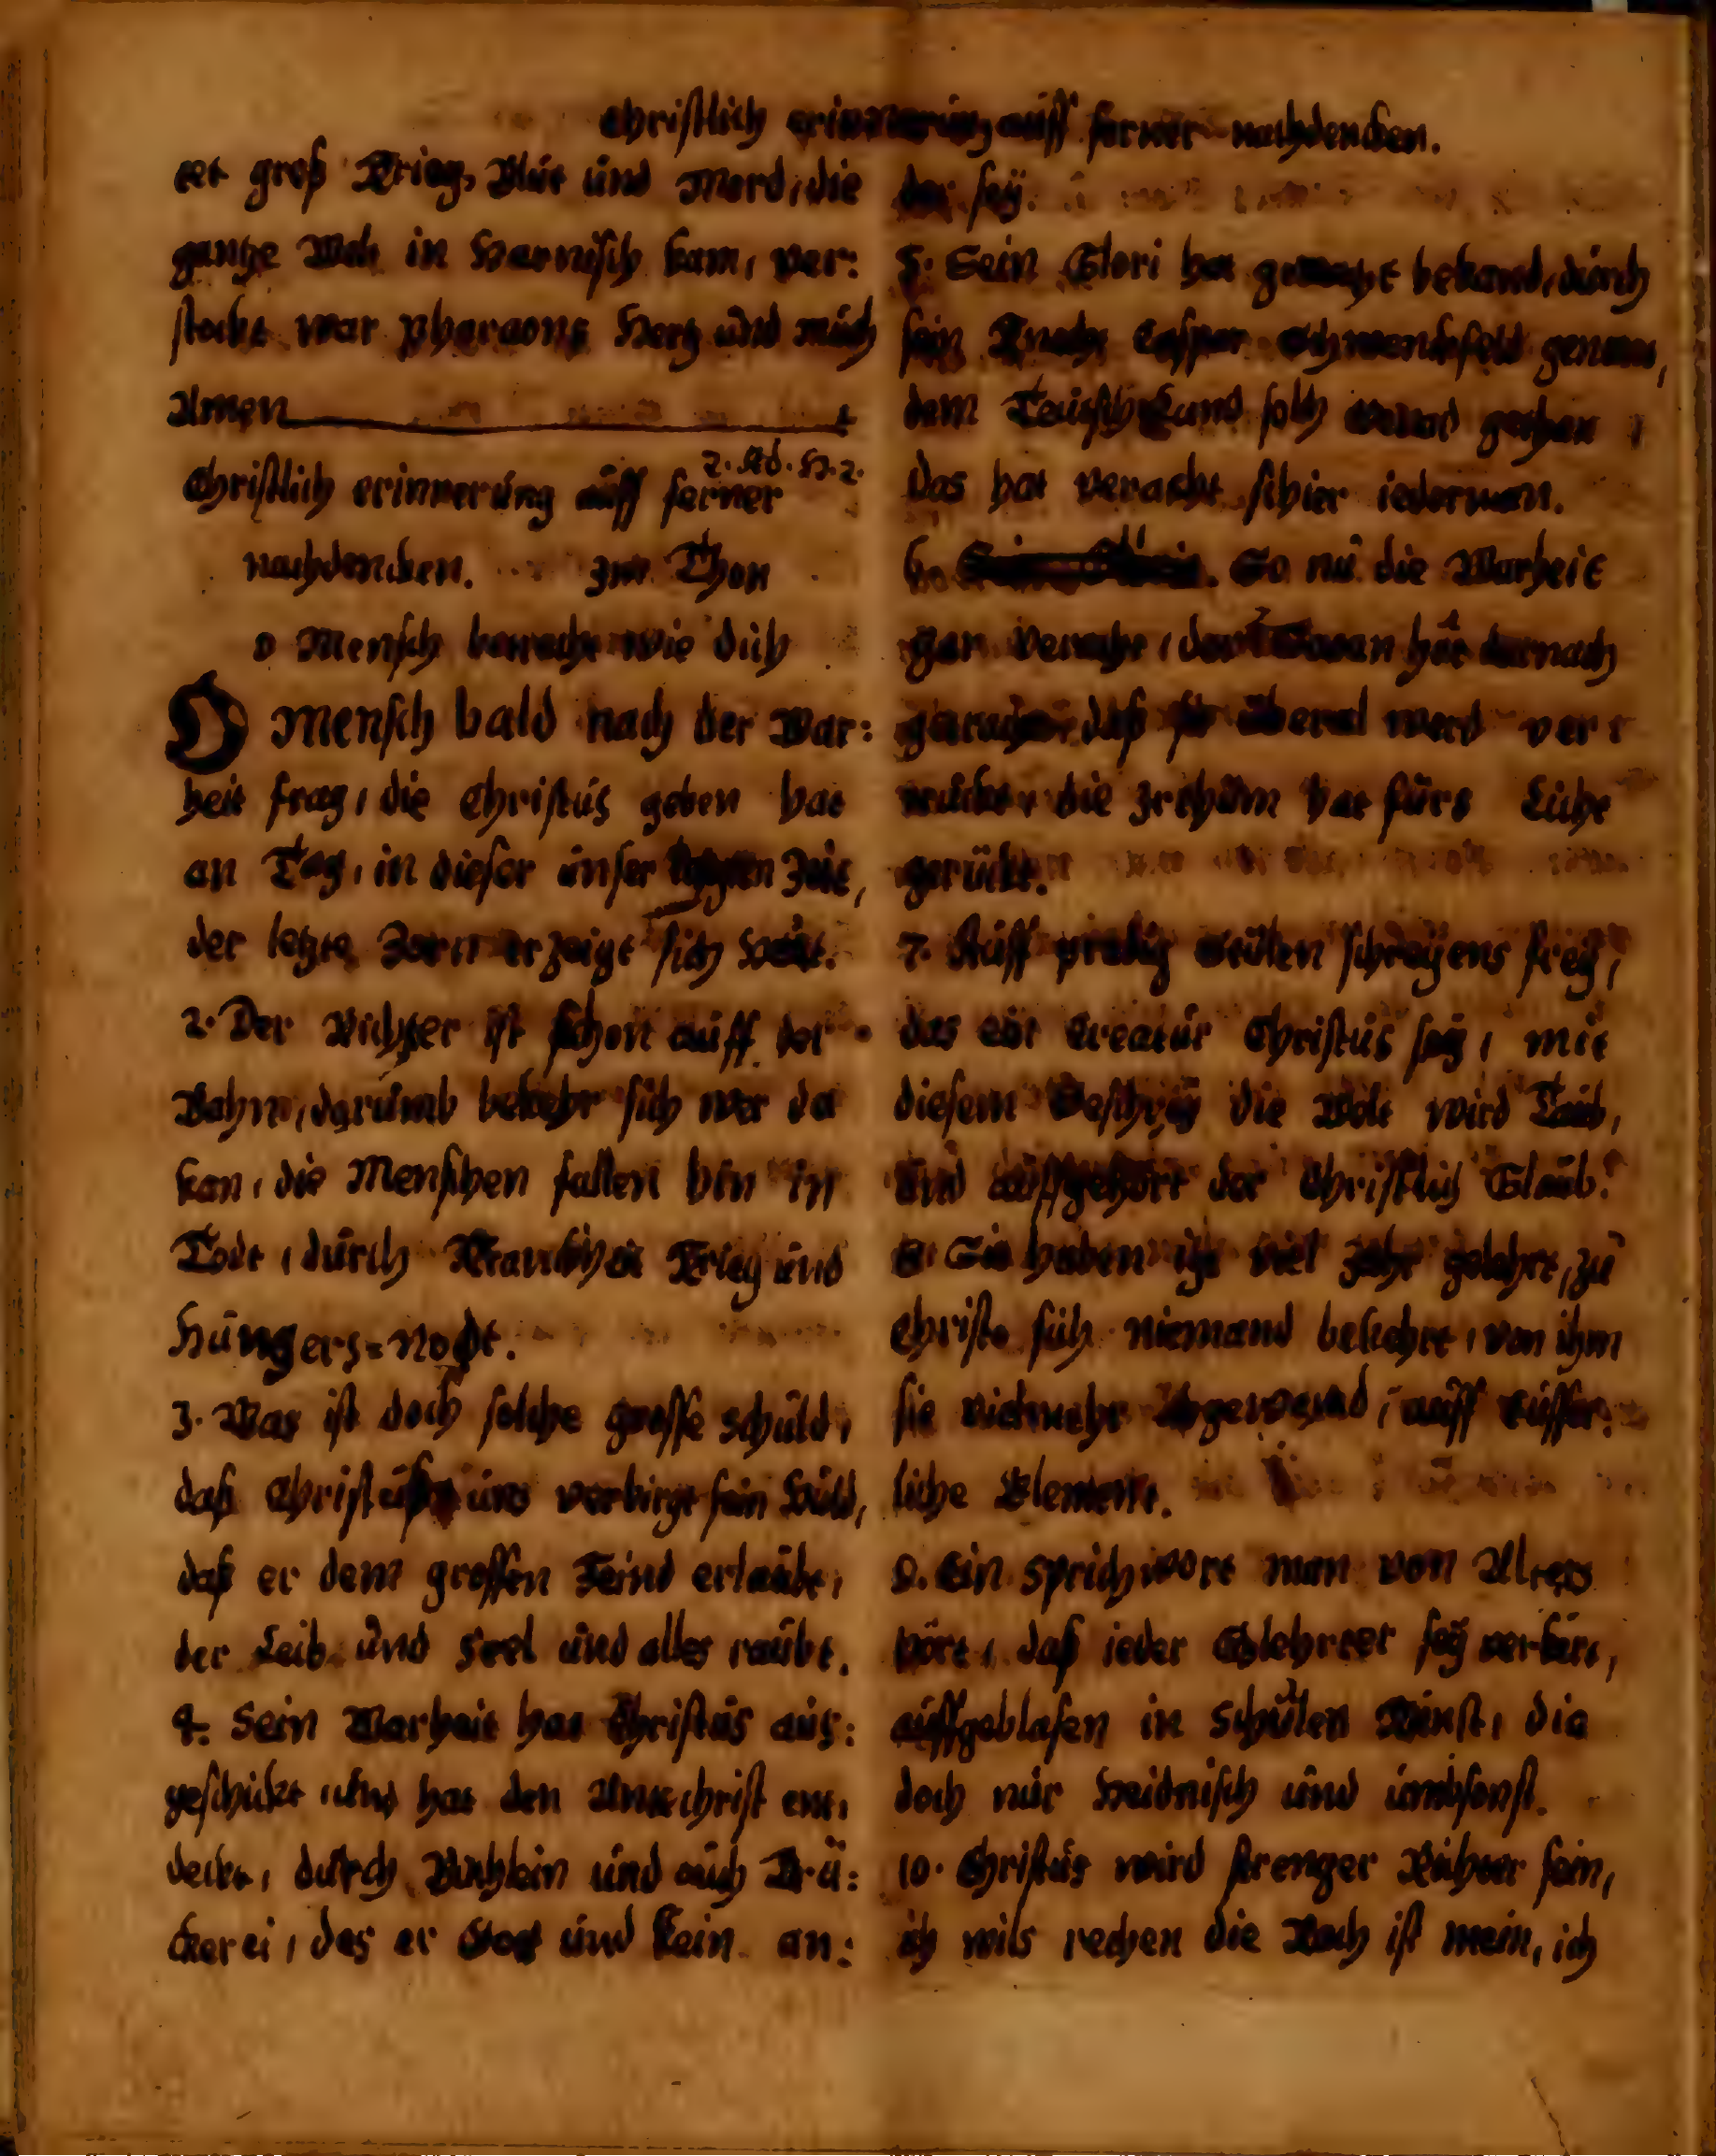 Christlich erinnerung auff ferner nachdencken.
tet groß Krieg, Blut und Mord, die
gantze Welt in Harnisch kam, ver:
stockt war Pharaons Hertz und muth
Amen
2. Ad. H. 2.
Christlich erinnerung auff ferner
nachdencken. Im Thon
O Mensch betracht wie dich
O Mensch bald nach der War:
heit frag, die Christus geben hat
an Tag, in dieser unser Zeit,
der letzte Zorn erzeigt sich heut.
2. Der Richter ist schon auff der
Bahn, darumb bekehr sich wer da
kan, die Menschen fallen hin in
Todt, durch Kranckheit Krieg und
Hungers=Noht.
3. Was ist doch solche grosse schuld,
daß Christus uns verbirgt sein Huld,
daß er dem grossen Feind erlaubt,
der Leib und Seel und alles raubt.
4. Sein Warheit hat Christus aus:
geschickt und hat den Antichrist ent,
deckt, durch Büchlein und auch Dru:
ckerei, das er Gott und kein an:
der seÿ.
5. Sein Glori hat gemacht bekand, durch
sein Knecht Casper Schwenckfeld genant,
dem Teutschland solch gethan
das hat veracht schier iederman.
6. So nu die Warheit
gar veracht, der Satan hat darnach
getracht, daß sie überal werd ver:
die Irthum hat fürs Licht
gerückt.
7. Auff predig Stülen schreÿens freÿ,
das ein Creatur Christus seÿ, mit
diesem Geschreÿ die Welt wird Taub,
und auffgehört der Christlich Glaub.
8. Sie haben itzt viel Jahr gelehrt, zu
Christo sich niemand bekehrt, von ihm
sie vielmehr abgewend, auff eusser:
liche Element.
9. Ein sprichwort man von Alters
hört, daß ieder Gelehrter seÿ verkert,
auffgeblasen in Schulen Kunst, die
doch nur Heidnisch und umbsonst.
10. Christus wird strenger Richter sein,
ich wils rechen die Rach ist mein, ich